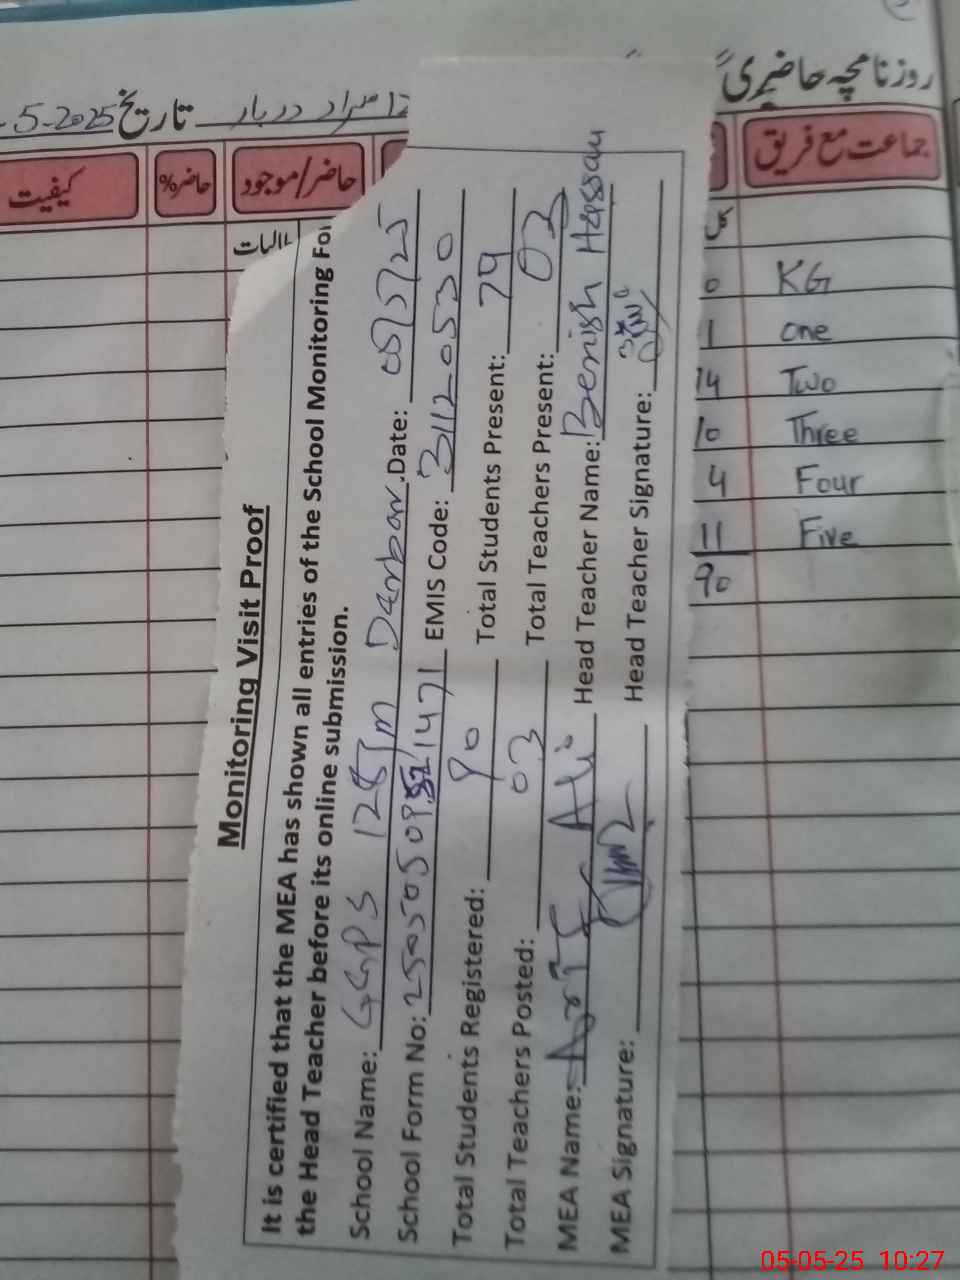 روزنامچہ حاضری
تاریخ -5-2025
جماعت مع فریق
حاضر/موجود
حاضر%
کیفیت
کل
KG 0
one 1
Two 14
Three 10
Four 4
Five 11
90
Monitoring Visit Proof
It is certified that the MEA has shown all entries of the School Monitoring For
the Head Teacher before its online submission.
School Name: GGPS 128/m Darbar Date: 05/5/25
School Form No: EMIS Code: 31120530
Total Students Registered: 90 Total Students Present: 79
Total Teachers Posted: 03 Total Teachers Present: 03
MEA Name: Arif Ali Head Teacher Name: Benish Hassan
MEA Signature: Head Teacher Signature:
05-05-25 10:27